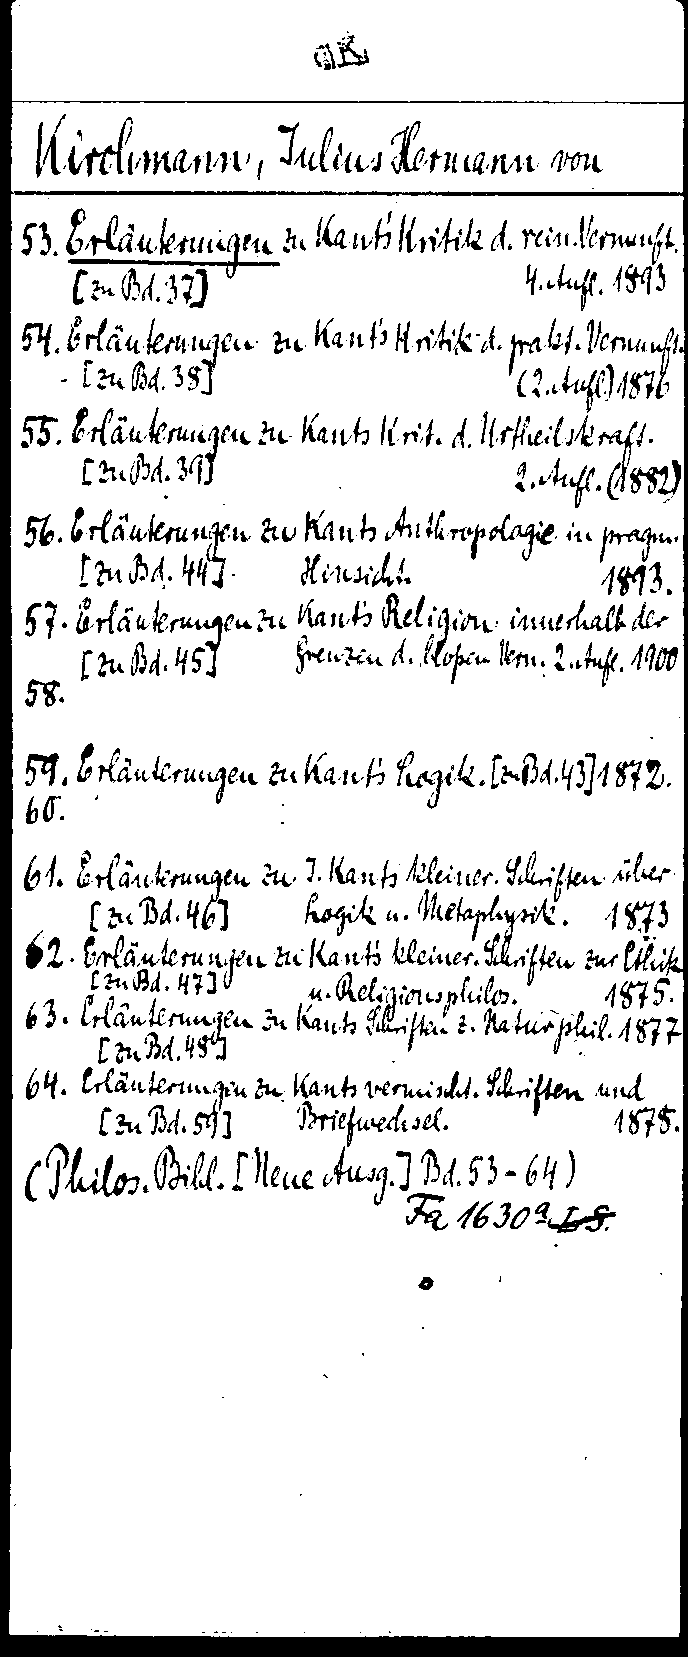 aK
Kirchmann, Julius Hermann von
53. Erläuterungen zu Kant's Kritik d. rein. Vernunft.
[zu Bd. 37] 4. Aufl. 1893
54. Erläuterungen zu Kant's Kritik d. prakt. Vernunft.
[zu Bd. 38] (2. Aufl) 1876
55. Erläuterungen zu Kants Krit. d. Urtheilskraft.
[zu Bd. 39] 2. Aufl. (1882)
56. Erläuterungen zu Kants Anthropologie in pragm.
[zu Bd. 44] Hinsicht. 1893.
57. Erläuterungen zu Kant's Religion innerhalb der
[zu Bd. 45] Grenzen d. blossen Vern. 2. Aufl. 1900
58.
59. Erläuterungen zu Kant's Logik. [zu Bd. 43] 1872.
60.
61. Erläuterungen zu I. Kants kleiner. Schriften über
[zu Bd. 46] Logik u. Metaphysik. 1873
62. Erläuterungen zu Kant's kleiner. Schriften zur Ethik
[zu Bd. 47] u. Religionsphilos. 1875.
63. Erläuterungen zu Kants Schriften z. Naturphil. 1877
[zu Bd. 48]
64. Erläuterungen zu Kants vermischt. Schriften und
[zu Bd. 59] Briefwechsel. 1878.
(Philos. Bibl. [Neue Ausg.] Bd. 53-64)
Fa 1630a LS.